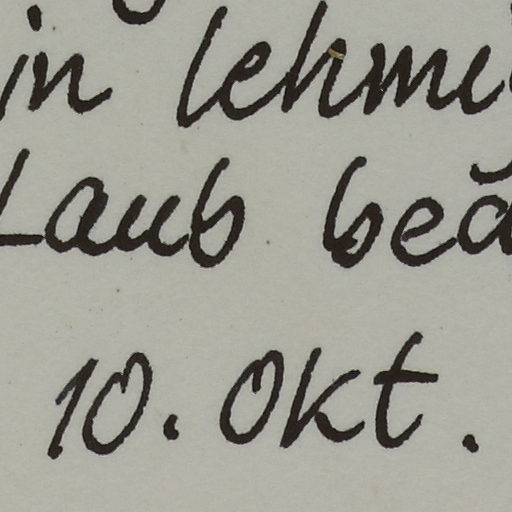 in lehmi
Laub bed
10. Okt.